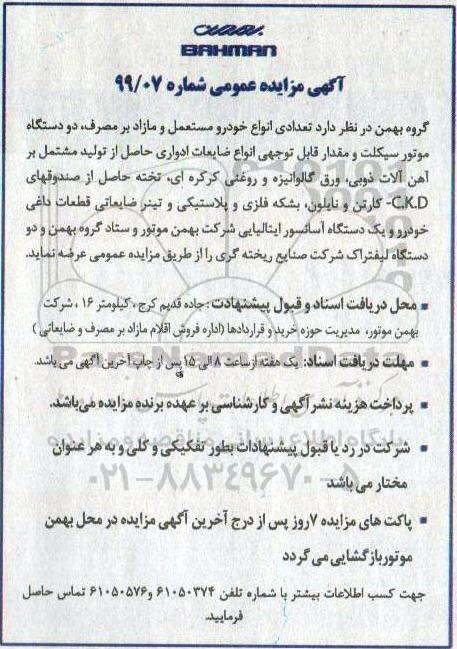 بهمن
BAHMAN
آگهی مزایده عمومی شماره ۹۹/۰۷
گروه بهمن در نظر دارد تعدادی انواع خودرو مستعمل و مازاد بر مصرف، دو دستگاه
موتور سیکلت و مقدار قابل توجهی انواع ضایعات ادواری حاصل از تولید مشتمل بر
آهن آلات ذوبی، ورق گالوانیزه و روغنی کرکره ای، تخته حاصل از صندوقهای
C.K.D- کارتن و نایلون، بشکه فلزی و پلاستیکی و تینر ضایعاتی قطعات داغی
خودرو و یک دستگاه آسانسور ایتالیایی شرکت بهمن موتور و ستاد گروه بهمن و دو
دستگاه لیفتراک شرکت صنایع ریخته گری را از طریق مزایده عمومی عرضه نماید.
▪ محل دریافت اسناد و قبول پیشنهادت : جاده قدیم کرج ، کیلومتر ۱۶ ، شرکت
بهمن موتور، مدیریت حوزه خرید و قراردادها (اداره فروش اقلام مازاد بر مصرف و ضایعاتی )
▪ مهلت دریافت اسناد: یک هفته ازساعت ۸ الی ۱۵ پس از چاپ آخرین آگهی می باشد.
▪ پرداخت هزینه نشر آگهی و کارشناسی بر عهده برنده مزایده می‌باشد.
▪ شرکت در رد یا قبول پیشنهادات بطور تفکیکی و کلی و به هر عنوان
مختار می باشد
▪ پاکت های مزایده ۷روز پس از درج آخرین آگهی مزایده در محل بهمن
موتوربازگشایی می گردد
جهت کسب اطلاعات بیشتر با شماره تلفن ۶۱۰۵۰۳۷۴ و۶۱۰۵۰۵۷۶ تماس حاصل
فرمایید.
پایگاه اطلاع رسانی مناقصه و مزایده
۰۲۱-۸۸۳۴۹۶۷۰-۵